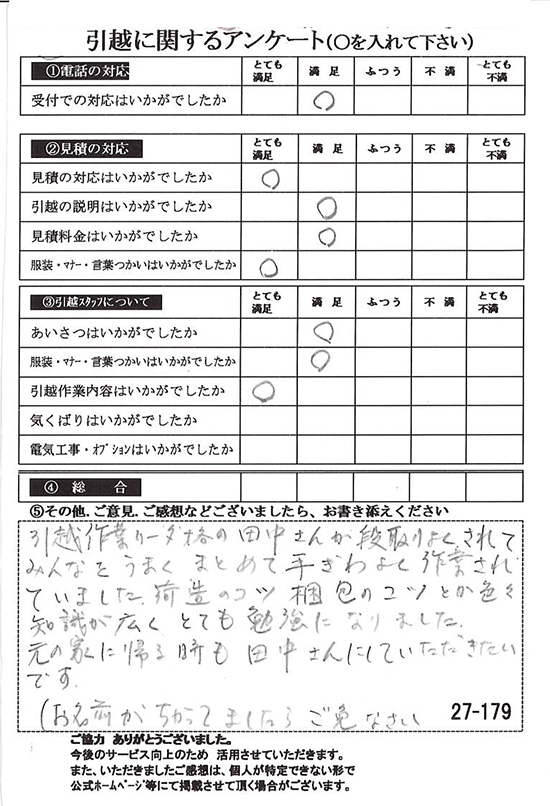 引越に関するアンケート(〇を入れて下さい)
①電話の対応 とても満足 満足 ふつう 不満 とても不満
受付での対応はいかがでしたか 〇
②見積の対応 とても満足 満足 ふつう 不満 とても不満
見積の対応はいかがでしたか 〇
引越の説明はいかがでしたか 〇
見積料金はいかがでしたか 〇
服装・マナー・言葉つかいはいかがでしたか 〇
③引越スタッフについて とても満足 満足 ふつう 不満 とても不満
あいさつはいかがでしたか 〇
服装・マナー・言葉つかいはいかがでしたか 〇
引越作業内容はいかがでしたか 〇
気くばりはいかがでしたか
電気工事・オプションはいかがでしたか
④ 総 合
⑤その他.ご意見.ご感想などございましたら、お書き添えください
引越作業リーダ格の田中さんが段取りよくされて
みんなをうまくまとめて手ぎわよく作業され
ていました.荷造のコツ 梱包のコツとか色々
知識が広くとても勉強になりました.
元の家に帰る時も田中さんにしていただきたい
です.
(お名前がちがってましたらご免なさい
27-179
ご協力 ありがとうございました。
今後のサービス向上のため 活用させていただきます。
また、いただきましたご感想は、個人が特定できない形で
公式ホームページ等にて掲載させて頂く場合がございます。